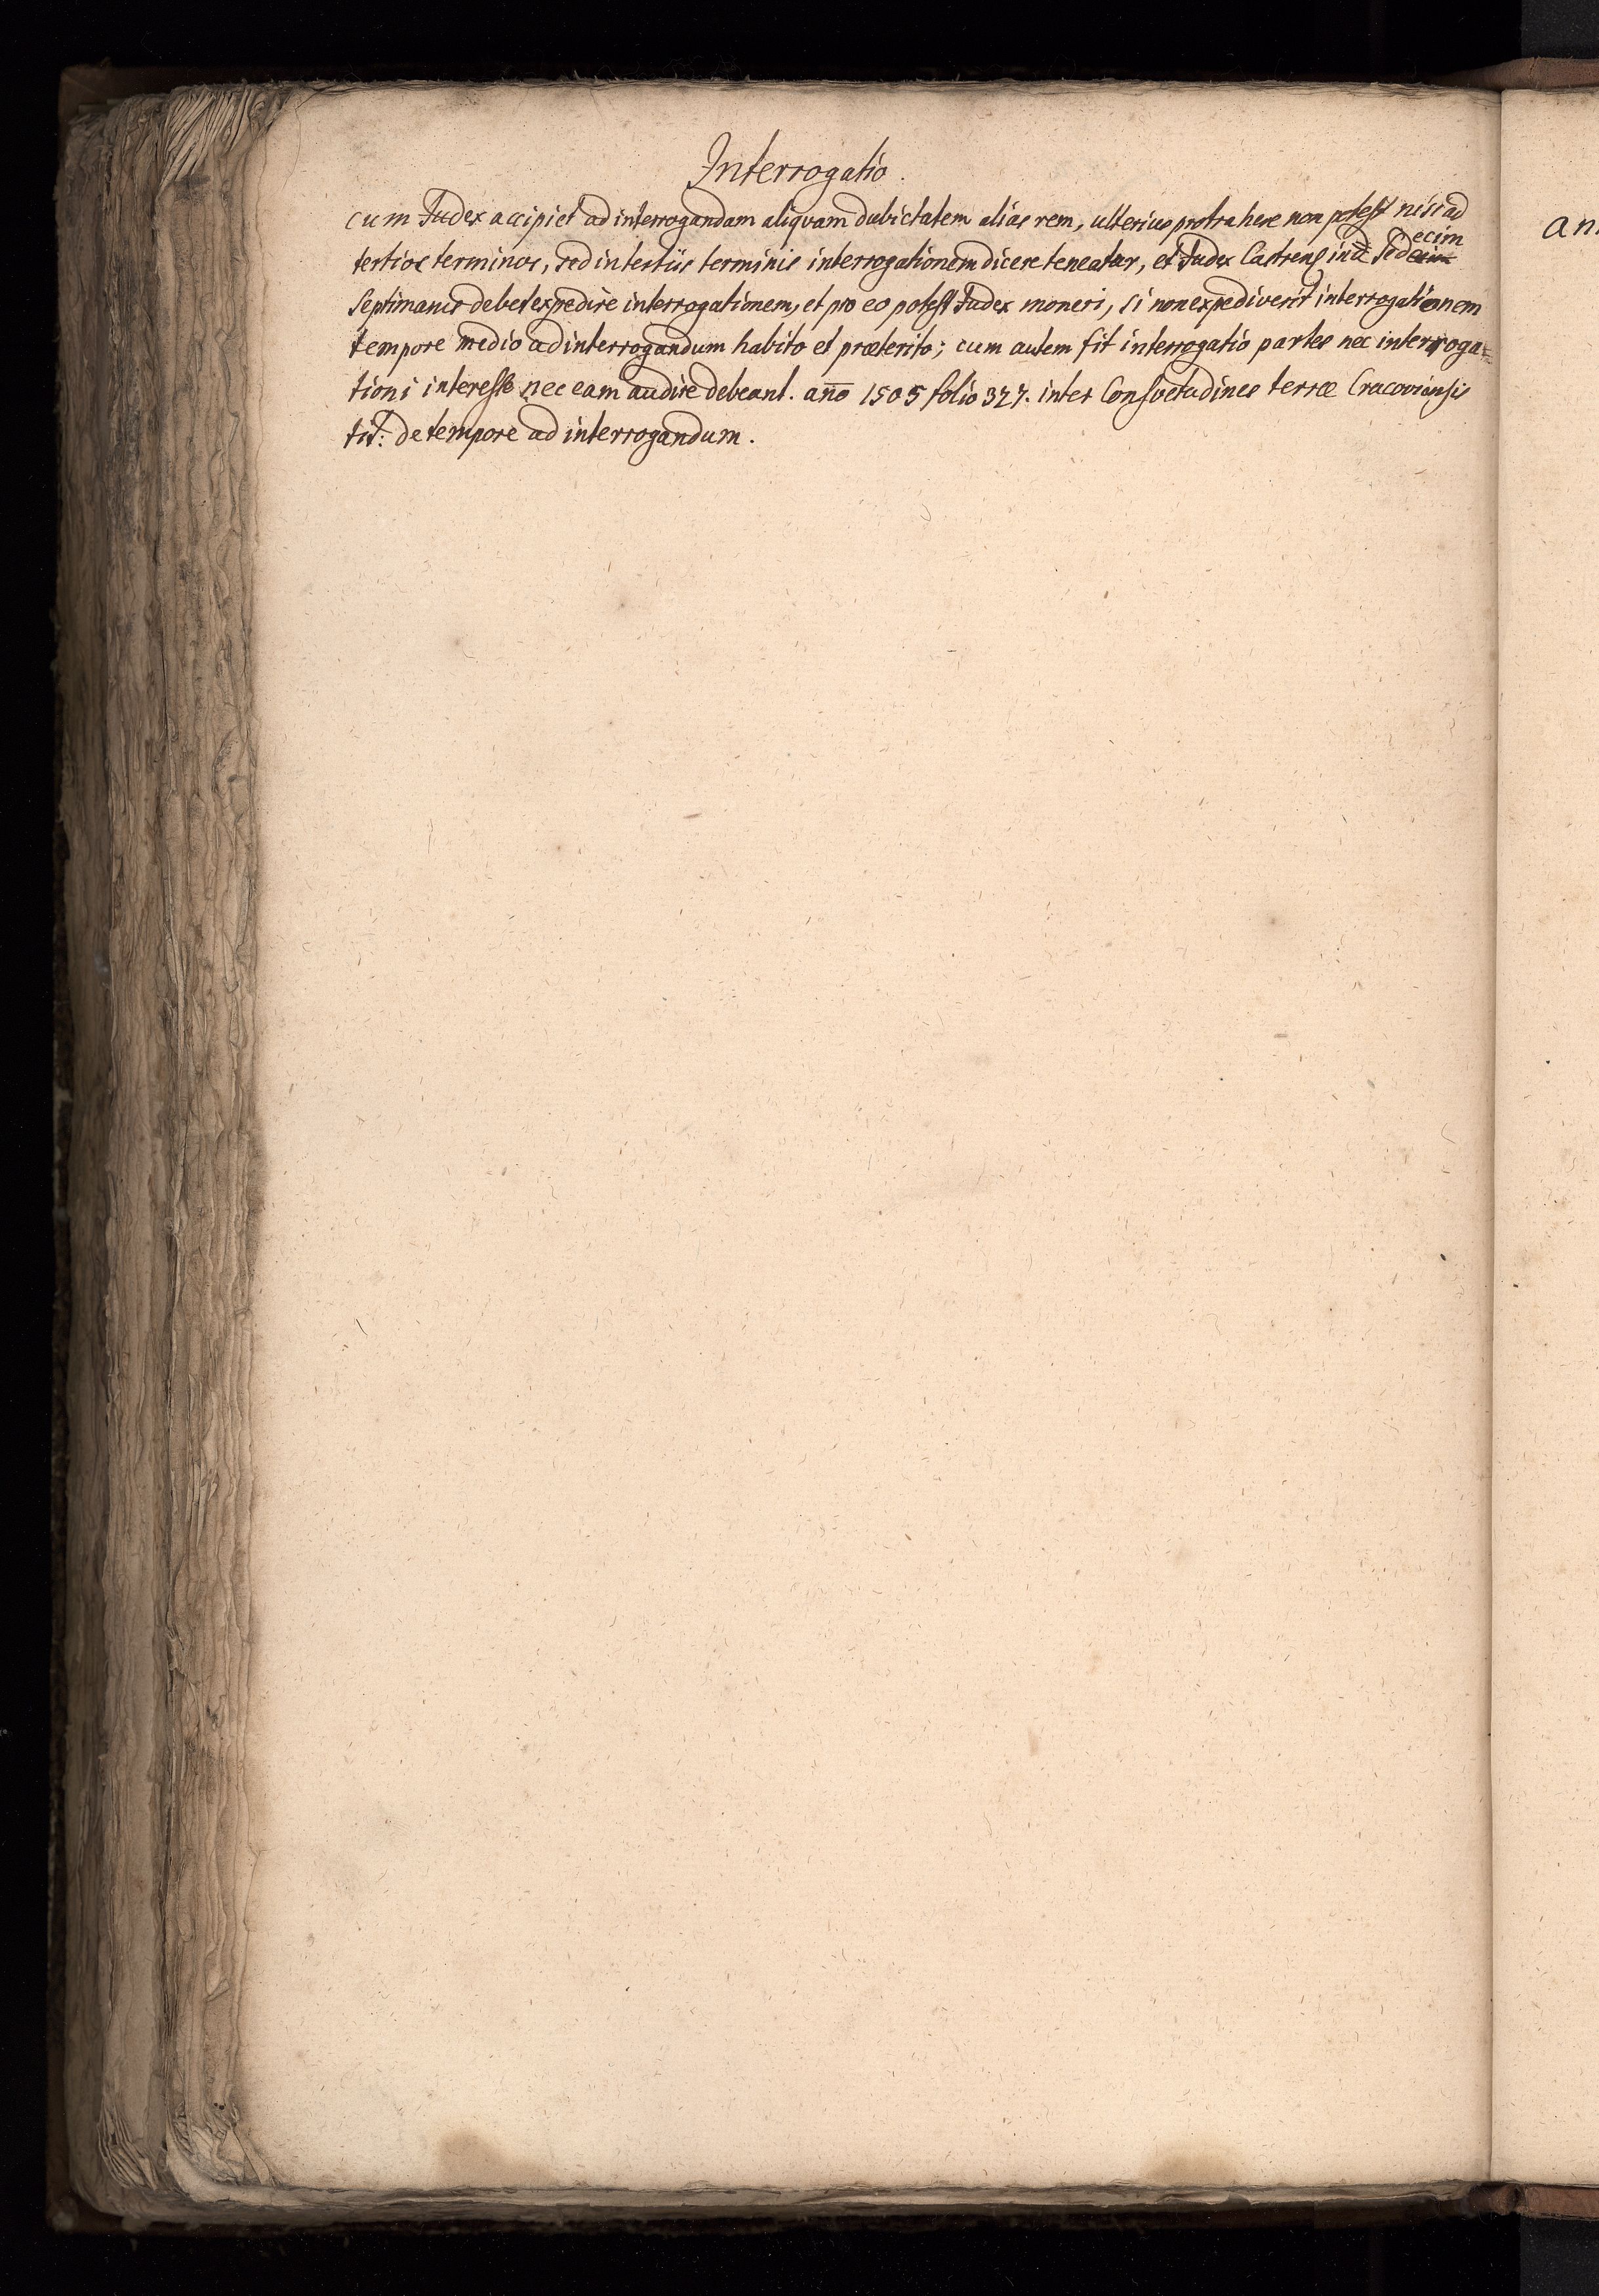 Interrogatio.
cum Judex accipiet ad interrogandam aliqvam dubietatem alias rem, ulterius protrahere non potest nisi ad
tertios terminos, sed in tertiis terminis interrogationem dicere teneatur, et Judex Castrens in sedecim
septimanis debet expedire interrogationem, et pro eo potest Judex moneri, si non expediverit interrogationem
tempore medio ad interrogandum habito et præterito; cum autem fit interrogatio partes nec interroga=
tioni interesse nec eam audire debeant. año 1505 folio 327. inter Consvetudines terræ Cracoviensis
tit: de tempore ad interrogandum.
an